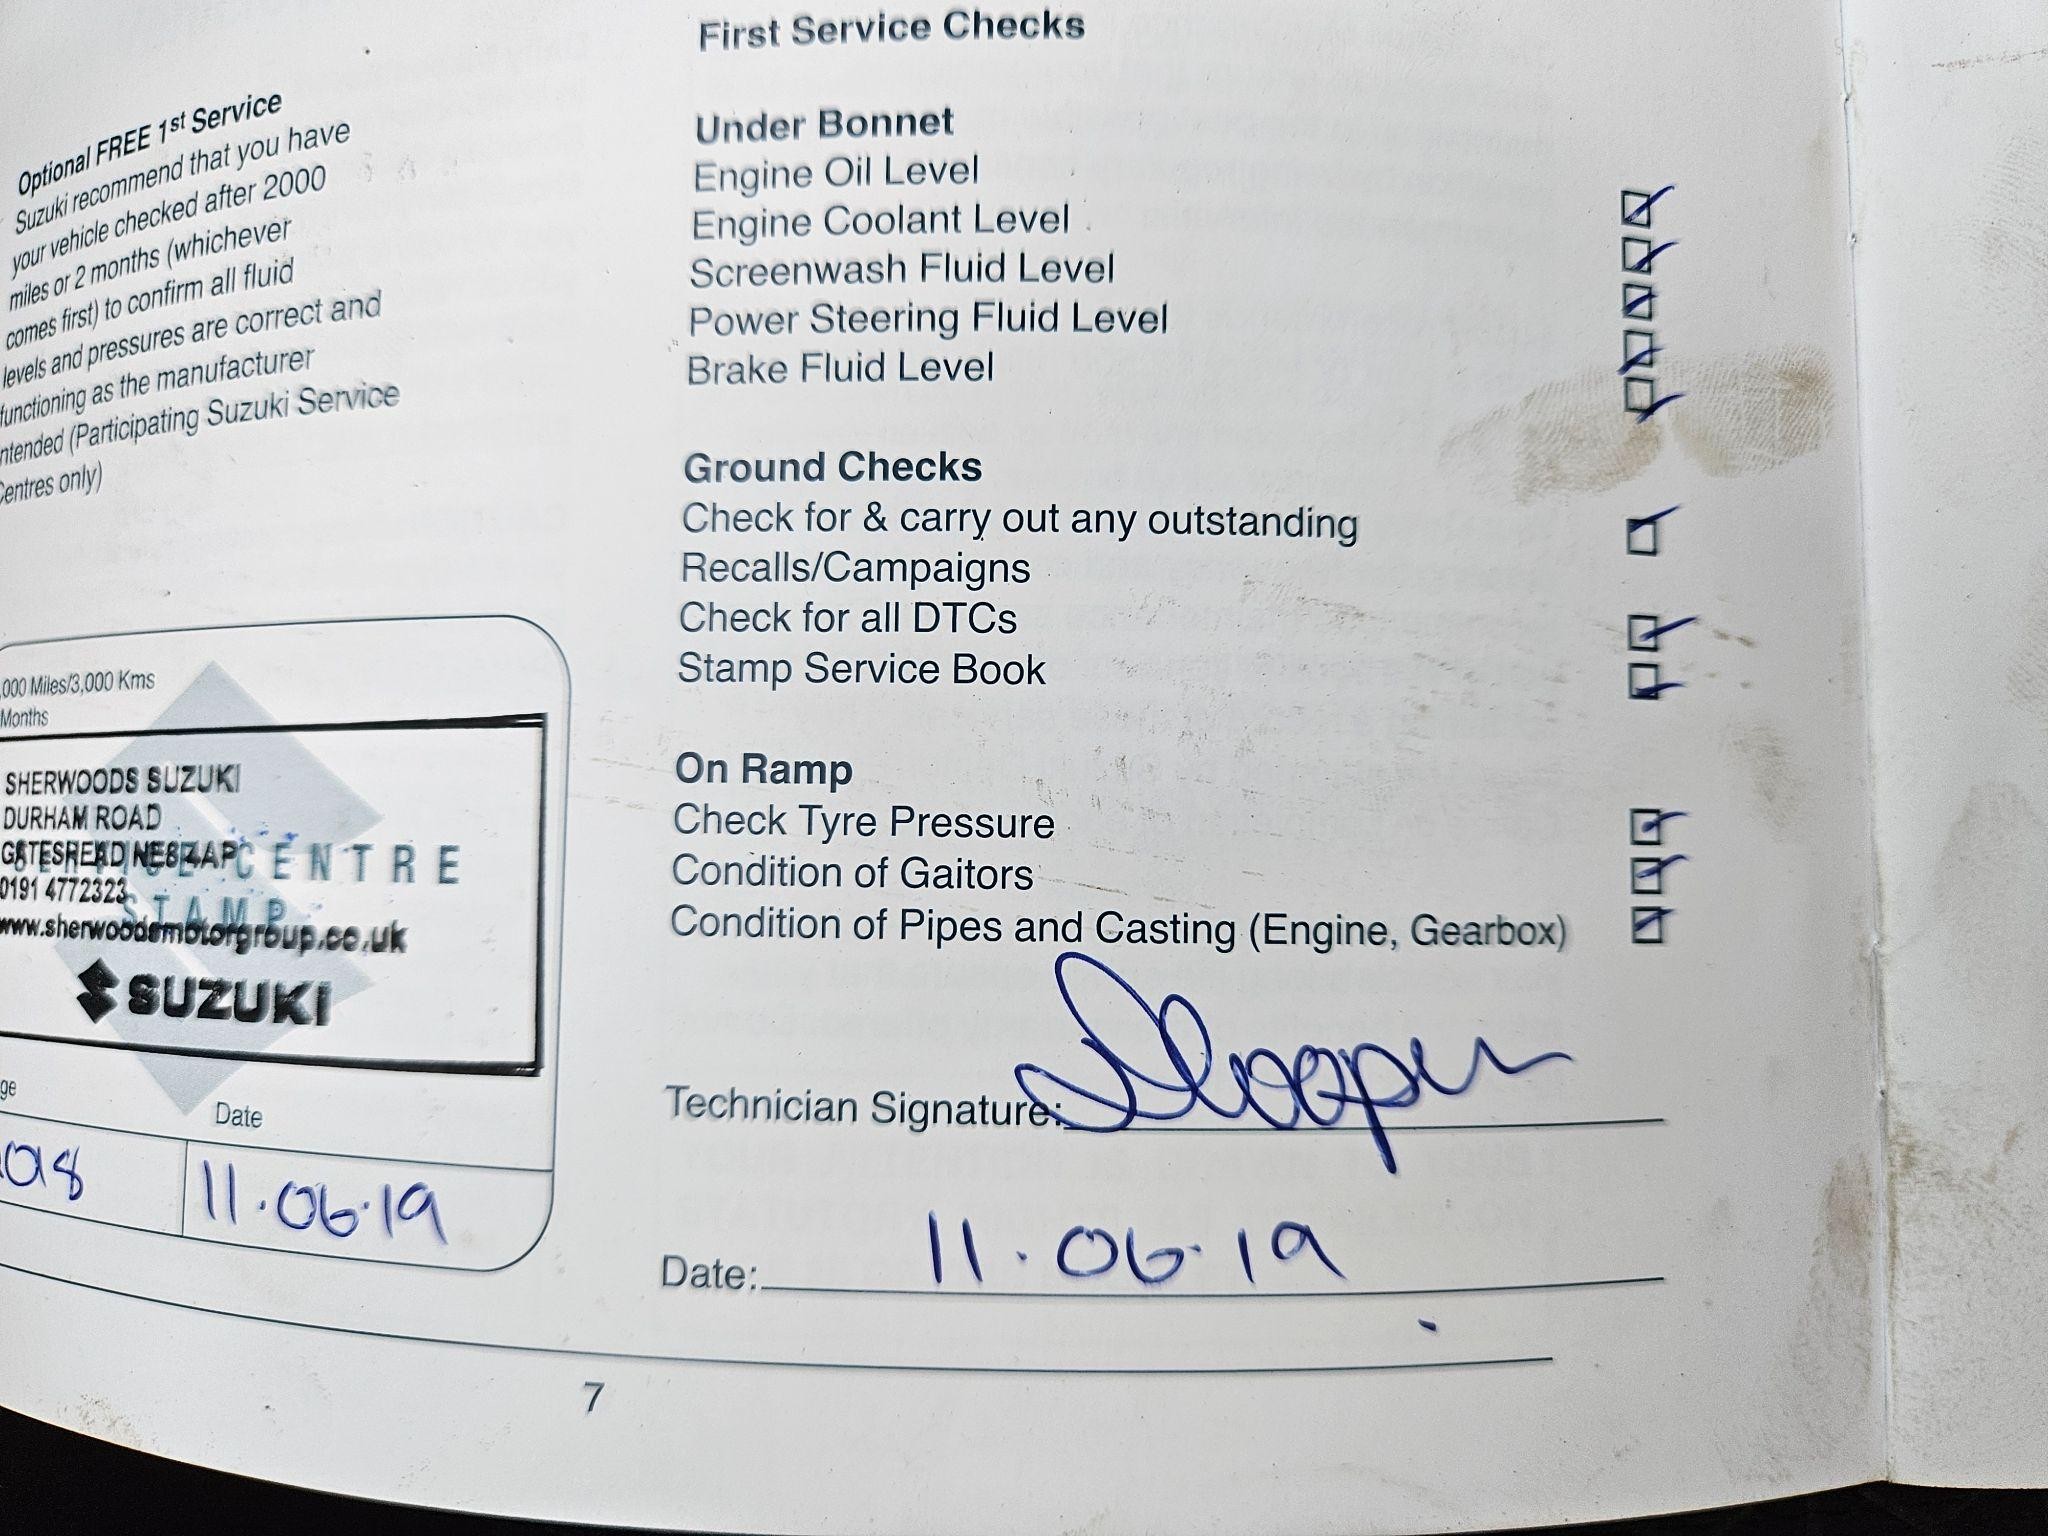 Optional FREE 1st Service
Suzuki recommend that you have
your vehicle checked after 2000
miles or 2 months (whichever
comes first) to confirm all fluid
levels and pressures are correct and
functioning as the manufacturer
ntended (Participating Suzuki Service
Centres only)
,000 Miles/3,000 Kms
Months
SHERWOODS SUZUKI
DURHAM ROAD
GATESHEAD NE8 4AP
CENTRE
0191 4772323
STAMP
www.sherwoodsmotorgroup.co.uk
SUZUKI
ge
Date
018
11.06.19
First Service Checks
Under Bonnet
Engine Oil Level
Engine Coolant Level
Screenwash Fluid Level
Power Steering Fluid Level
Brake Fluid Level
Ground Checks
Check for & carry out any outstanding
Recalls/Campaigns
Check for all DTCs
Stamp Service Book
On Ramp
Check Tyre Pressure
Condition of Gaitors
Condition of Pipes and Casting (Engine, Gearbox)
Technician Signature:
Date: 11.06.19
7